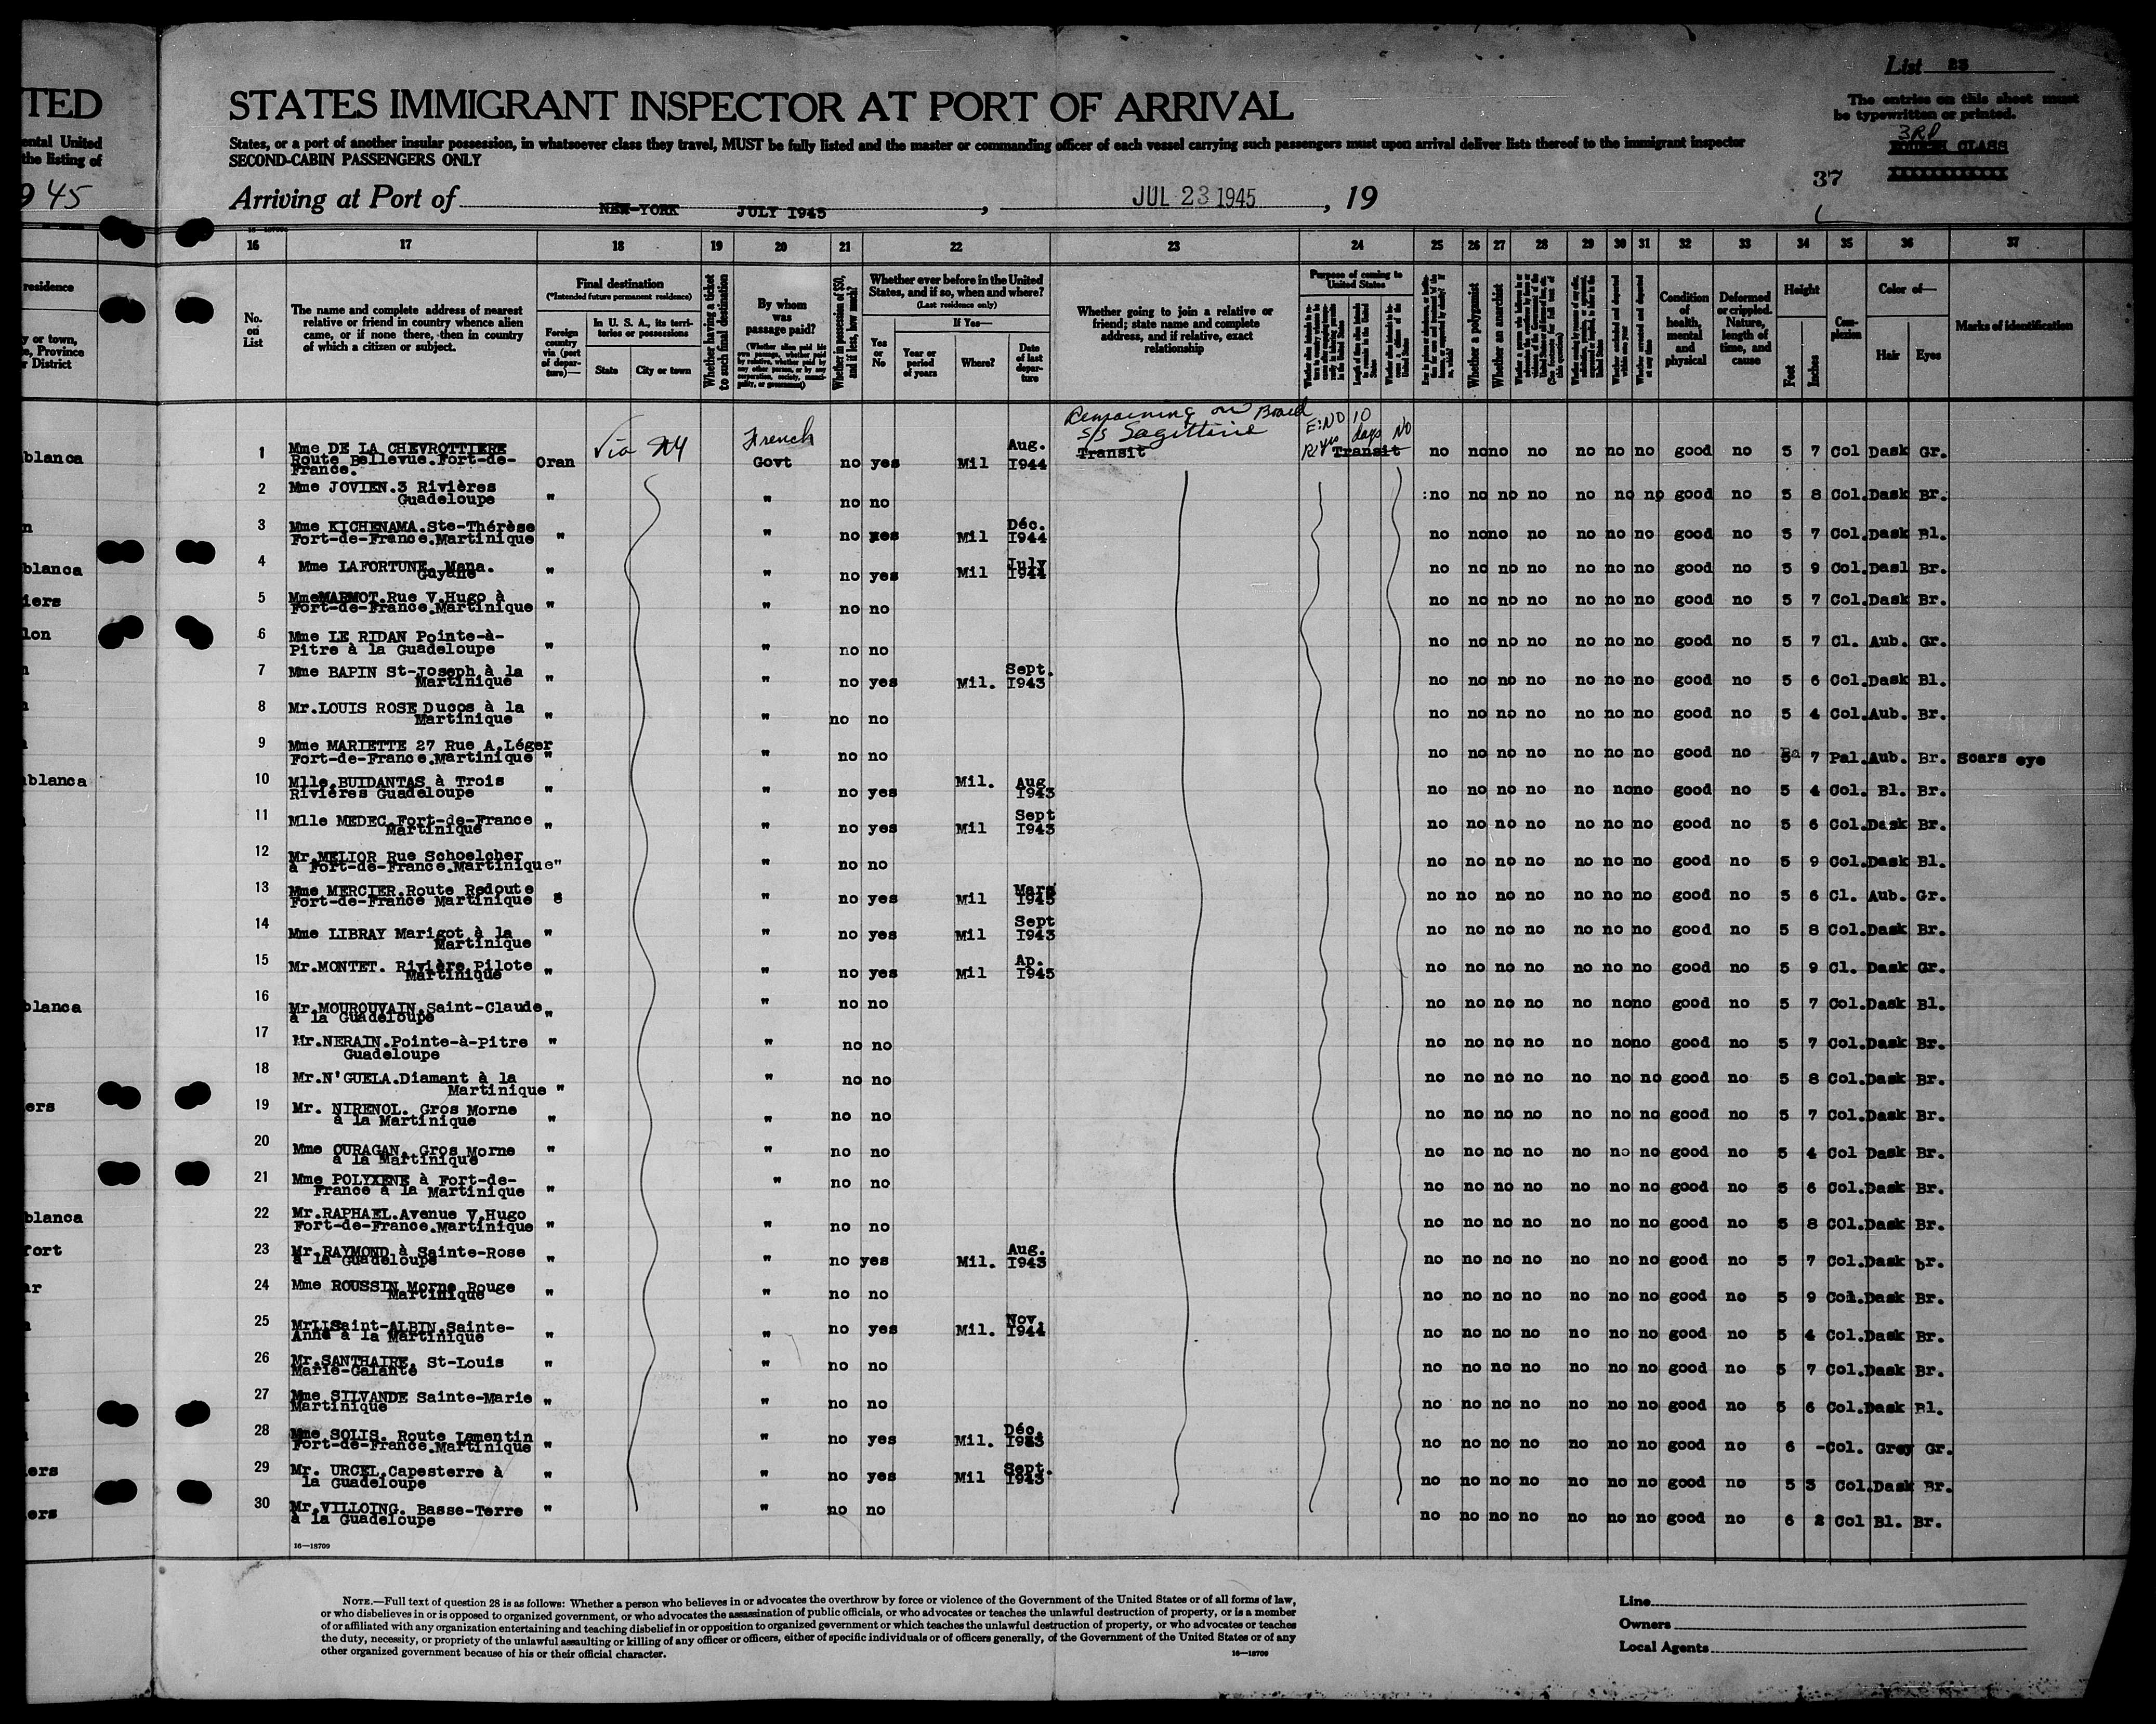 TED
ental United
the listing of
945
residence
y or town,
e, Province
r District
List 23
The entries on this sheet must
be typewritten or printed.
3RD
FOURTH CLASS
37
STATES IMMIGRANT INSPECTOR AT PORT OF ARRIVAL
States, or a port of another insular possession, in whatsoever class they travel, MUST be fully listed and the master or commanding officer of each vessel carrying such passengers must upon arrival deliver lists thereof to the immigrant inspector
SECOND-CABIN PASSENGERS ONLY
Arriving at Port of NEW-YORK JULY 1945, JUL 23 1945, 19
16 17 18 19 20 21 22 23 24 25 26 27 28 29 30 31 32 33 34 35 36 37
No. on List
The name and complete address of nearest relative or friend in country whence alien came, or if none there, then in country of which a citizen or subject.
Final destination
(*Intended future permanent residence)
Foreign country via (port of departure)—
In U. S. A., its territories or possessions
State
City or town
Whether having a ticket to such final destination
By whom was passage paid?
(Whether alien paid his own passage, whether paid by relative, whether paid by any other person, or by any corporation, society, municipality, or government)
Whether in possession of $50, and if less, how much?
Whether ever before in the United States, and if so, when and where?
(Last residence only)
If Yes—
Yes or No
Year or period of years
Where?
Date of last departure
Whether going to join a relative or friend; state name and complete address, and if relative, exact relationship
Purpose of coming to United States
Whether a polygamist
Whether an anarchist
Condition of health, mental and physical
Deformed or crippled. Nature, length of time, and cause
Height
Feet
Inches
Complexion
Color of—
Hair
Eyes
Marks of identification
Remaining on Board
s/s Sagittine
Transit
E: NO 10 days NO
R: Yes
Transit
blanca
1 Mme DE LA CHEVROTTIERE Route Bellevue.Fort-de-France. Oran Via NY French Govt no yes Mil Aug. 1944 no no no no no no no good no 5 7 Col Dask Gr.
2 Mme JOVIEN.3 Rivières Guadeloupe " " no no :no no no no no no no good no 5 8 Col.Dask Br.
3 Mme KICHENAMA.Ste-Thérèse Fort-de-France.Martinique " " no yes Mil Déc. 1944 no no no no no no no good no 5 7 Col.Dask Bl.
blanca
4 Mme LAFORTUNE. Mana. Guyane " " no yes Mil July 1944 no no no no no no no good no 5 9 Col.Dasl Br.
iers
5 MmeMARMOT.Rue V.Hugo à Fort-de-France.Martinique " " no no no no no no no no no good no 5 7 Col.Dask Br.
lon
6 Mme LE RIDAN Pointe-à-Pitre à la Guadeloupe " " no no no no no no no no no good no 5 7 Cl. Aub. Gr.
7 Mme BAPIN St-Joseph à la Martinique " " no yes Mil. Sept. 1943 no no no no no no no good no 5 6 Col.Dask Bl.
8 Mr.LOUIS ROSE Ducos à la Martinique " " no no no no no no no no no good no 5 4 Col.Aub. Br.
9 Mme MARIETTE 27 Rue A.Léger Fort-de-France.Martinique " " no no no no no no no no no good no 5 7 Pal.Aub. Br. Scars eye
blanca
10 Mlle.BUIDANTAS à Trois Rivières Guadeloupe " " no yes Mil. Aug 1943 no no no no no no no good no 5 4 Col. Bl. Br.
11 Mlle MEDEC.Fort-de-France Martinique " " no yes Mil Sept 1943 no no no no no no no good no 5 6 Col.Dask Br.
12 Mr.MELIOR Rue Schoelcher à Fort-de-France.Martinique" " no no no no no no no no no good no 5 9 Col.Dask Bl.
13 Mme MERCIER.Route Redoute Fort-de-France Martinique " no yes Mil Mars 1945 no no no no no no no good no 5 6 Cl. Aub. Gr.
14 Mme LIBRAY Marigot à la Martinique " " no yes Mil Sept 1943 no no no no no no no good no 5 8 Col.Dask Br.
15 Mr.MONTET. Rivière Pilote Martinique " " no yes Mil Ap. 1945 no no no no no no no good no 5 9 Cl. Dask Gr.
blanca
16 Mr.MOUROUVAIN.Saint-Claude à la Guadeloupe " " no no no no no no no no no good no 5 7 Col.Dask Bl.
17 Mr.NERAIN.Pointe-à-Pitre Guadeloupe " " no no no no no no no no no good no 5 7 Col.Dask Br.
18 Mr.N'GUELA.Diamant à la Martinique " " no no no no no no no no no good no 5 8 Col.Dask Br.
ers
19 Mr. NIRENOL. Gros Morne à la Martinique " " no no no no no no no no no good no 5 7 Col.Dask Br.
20 Mme OURAGAN. Gros Morne à la Martinique " " no no no no no no no no no good no 5 4 Col Dask Br.
21 Mme POLYXENE à Fort-de-France à la Martinique " " no no no no no no no no no good no 5 6 Col.Dask Br.
blanca
22 Mr.RAPHAEL.Avenue V.Hugo Fort-de-France.Martinique " " no no no no no no no no no good no 5 8 COl.Dask Br.
fort
23 Mr.RAYMOND à Sainte-Rose à la Guadeloupe " " no yes Mil. Aug. 1943 no no no no no no no good no 5 7 Col.Dask br.
ar
24 Mme ROUSSIN Morne Rouge Martinique " " no no no no no no no no no good no 5 9 Col.Dask Br.
25 Saint-ALBIN.Sainte-Anne à la Martinique " " no yes Mil. Nov. 1944 no no no no no no no good no 5 4 Col.Dask Br.
26 Mr.SANTHAIRE. St-Louis Marie-Galante " " no no no no no no no no no good no 5 7 Col.Dask Br.
27 Mme SILVANDE Sainte-Marie Martinique " " no no no no no no no no no good no 5 6 Col.Dask Bl.
28 Mme SOLIS. Route Lamentin Fort-de-France.Martinique " " no yes Mil. Déc. no no no no no no no good no 6 -Col. Grey Gr.
ers
29 Mr. URCEL.Capesterre à la Guadeloupe " " no yes Mil Sept. 1943 no no no no no no no good no 5 3 Col.Dask Br.
ers
30 Mr.VILLOING. Basse-Terre à la Guadeloupe " " no no no no no no no no no good no 6 2 Col Bl. Br.
16—18709
NOTE.—Full text of question 28 is as follows: Whether a person who believes in or advocates the overthrow by force or violence of the Government of the United States or of all forms of law,
or who disbelieves in or is opposed to organized government, or who advocates the assassination of public officials, or who advocates or teaches the unlawful destruction of property, or is a member
of or affiliated with any organization entertaining and teaching disbelief in or opposition to organized government or which teaches the unlawful destruction of property, or who advocates or teaches
the duty, necessity, or propriety of the unlawful assaulting or killing of any officer or officers, either of specific individuals or of officers generally, of the Government of the United States or of any
other organized government because of his or their official character.
16—18709
Line
Owners
Local Agents